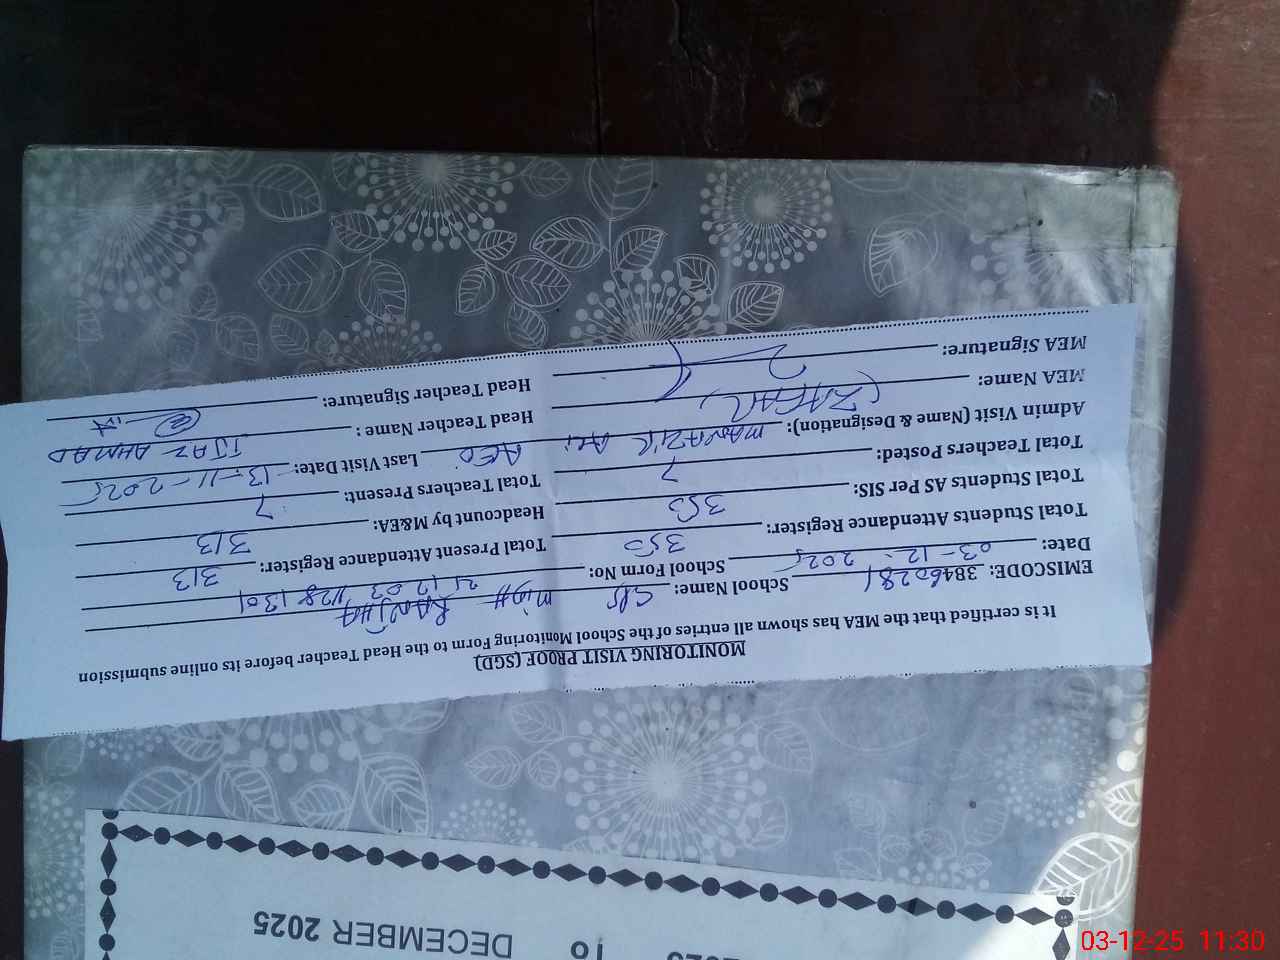 MONITORING VISIT PROOF (SGD)
It is certified that the MEA has shown all entries of the School Monitoring Form to the Head Teacher before its online submission
EMISCODE: 38460281 School Name: GPS MIAN RANJHA
Date: 03-12-2025 School Form No:
Total Students Attendance Register: 350 Total Present Attendance Register: 313
Total Students AS Per SIS: 350 Headcount by M&EA: 313
Total Teachers Posted: 7 Total Teachers Present: 7
Admin Visit (Name & Designation): MANAZIR Ali AEO Last Visit Date: 13-11-2025
MEA Name: (ZAFAR) Head Teacher Name: IJAZ AHMAD
MEA Signature: Head Teacher Signature:
2025 TO DECEMBER 2025
03-12-25 11:30